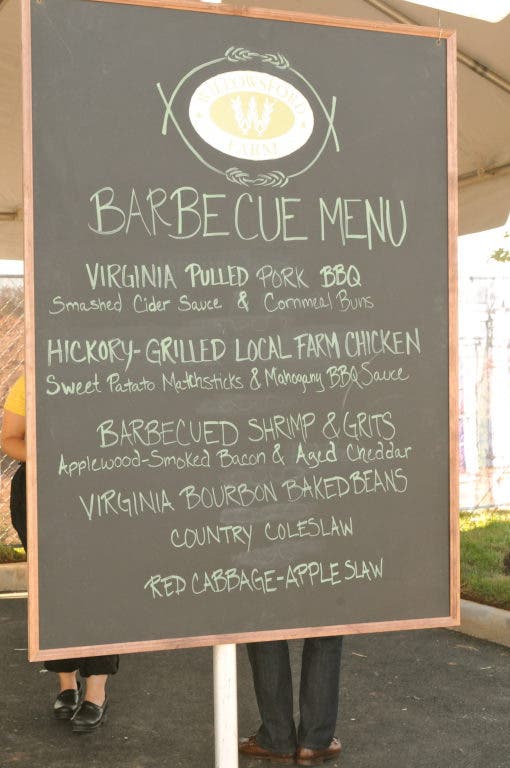 WILLOWSFORD
W
FARM
BARBECUE MENU
VIRGINIA PULLED PORK BBQ
Smashed Cider Sauce & Cornmeal Buns
HICKORY-GRILLED LOCAL FARM CHICKEN
Sweet Patato Matchsticks & Mahogany BBQ Sauce
BARBECUED SHRIMP & GRITS
Applewood-Smoked Bacon & Aged Cheddar
VIRGINIA BOURBON BAKED BEANS
COUNTRY COLESLAW
RED CABBAGE-APPLE SLAW